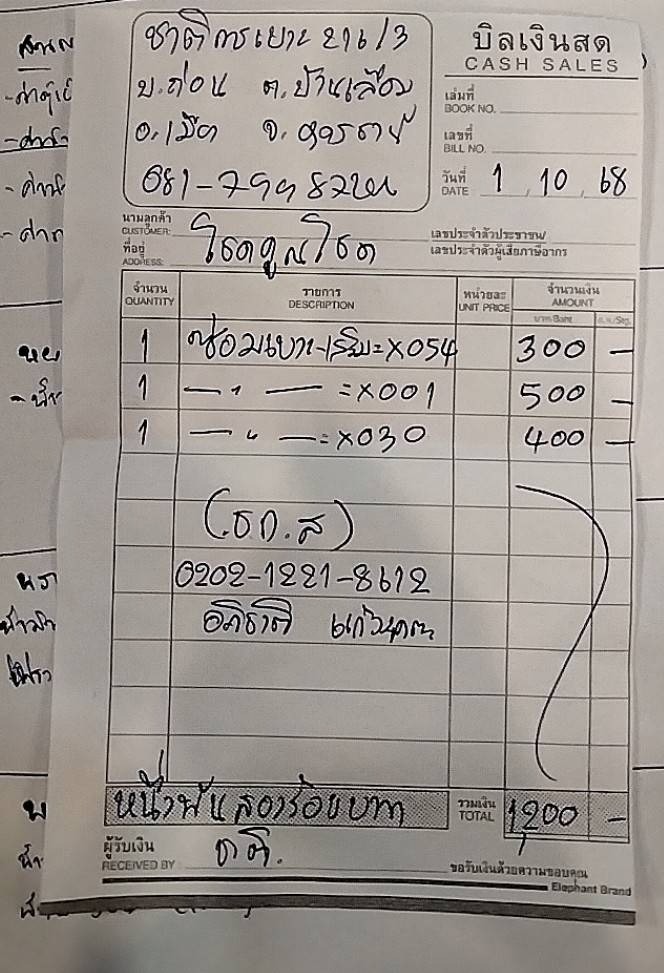 ชาติการเบาะ 216/3
บ.ถ่อน ต.บ้านเลื่อม
อ.เมือง จ.อุดรธานี
081-7998
บิลเงินสด
CASH SALES
เล่มที่
BOOK NO.
เลขที่
BILL NO.
วันที่
DATE 1, 10, 68
นามลูกค้า
CUSTOMER: โชคคูณโชค
เลขประจำตัวประชาชน/
ที่อยู่
ADDRESS:
เลขประจำตัวผู้เสียภาษีอากร
จำนวน รายการ หน่วยละ จำนวนเงิน
QUANTITY DESCRIPTION UNIT PRICE AMOUNT
บาท Baht ส.ต./Stg.
1 ซ่อมเบาะ-เสริม=X054 300 —
1 — " — =X001 500 —
1 — " —=X030 400 —
(ธก.ส)
0202-1221-8612
อภิชาติ
หนึ่งพันสองร้อยบาท
รวมเงิน
TOTAL 1200 —
ผู้รับเงิน
RECEIVED BY ชาติ.
ขอรับเงินด้วยความขอบคุณ
Elephant Brand